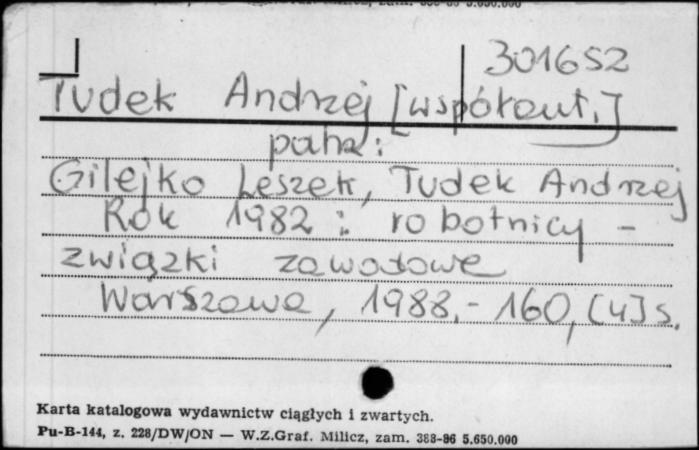 301652
Tudek Andrzej [współaut.]
patrz:
Gilejko Leszek, Tudek Andrzej
Rok 1982 : robotnicy -
związki zawodowe
Warszawa, 1988.- 160, [4] s.
Karta katalogowa wydawnictw ciągłych i zwartych.
Pu-B-144, z. 228/DW/ON — W.Z.Graf. Milicz, zam. 388-86 5.650.000